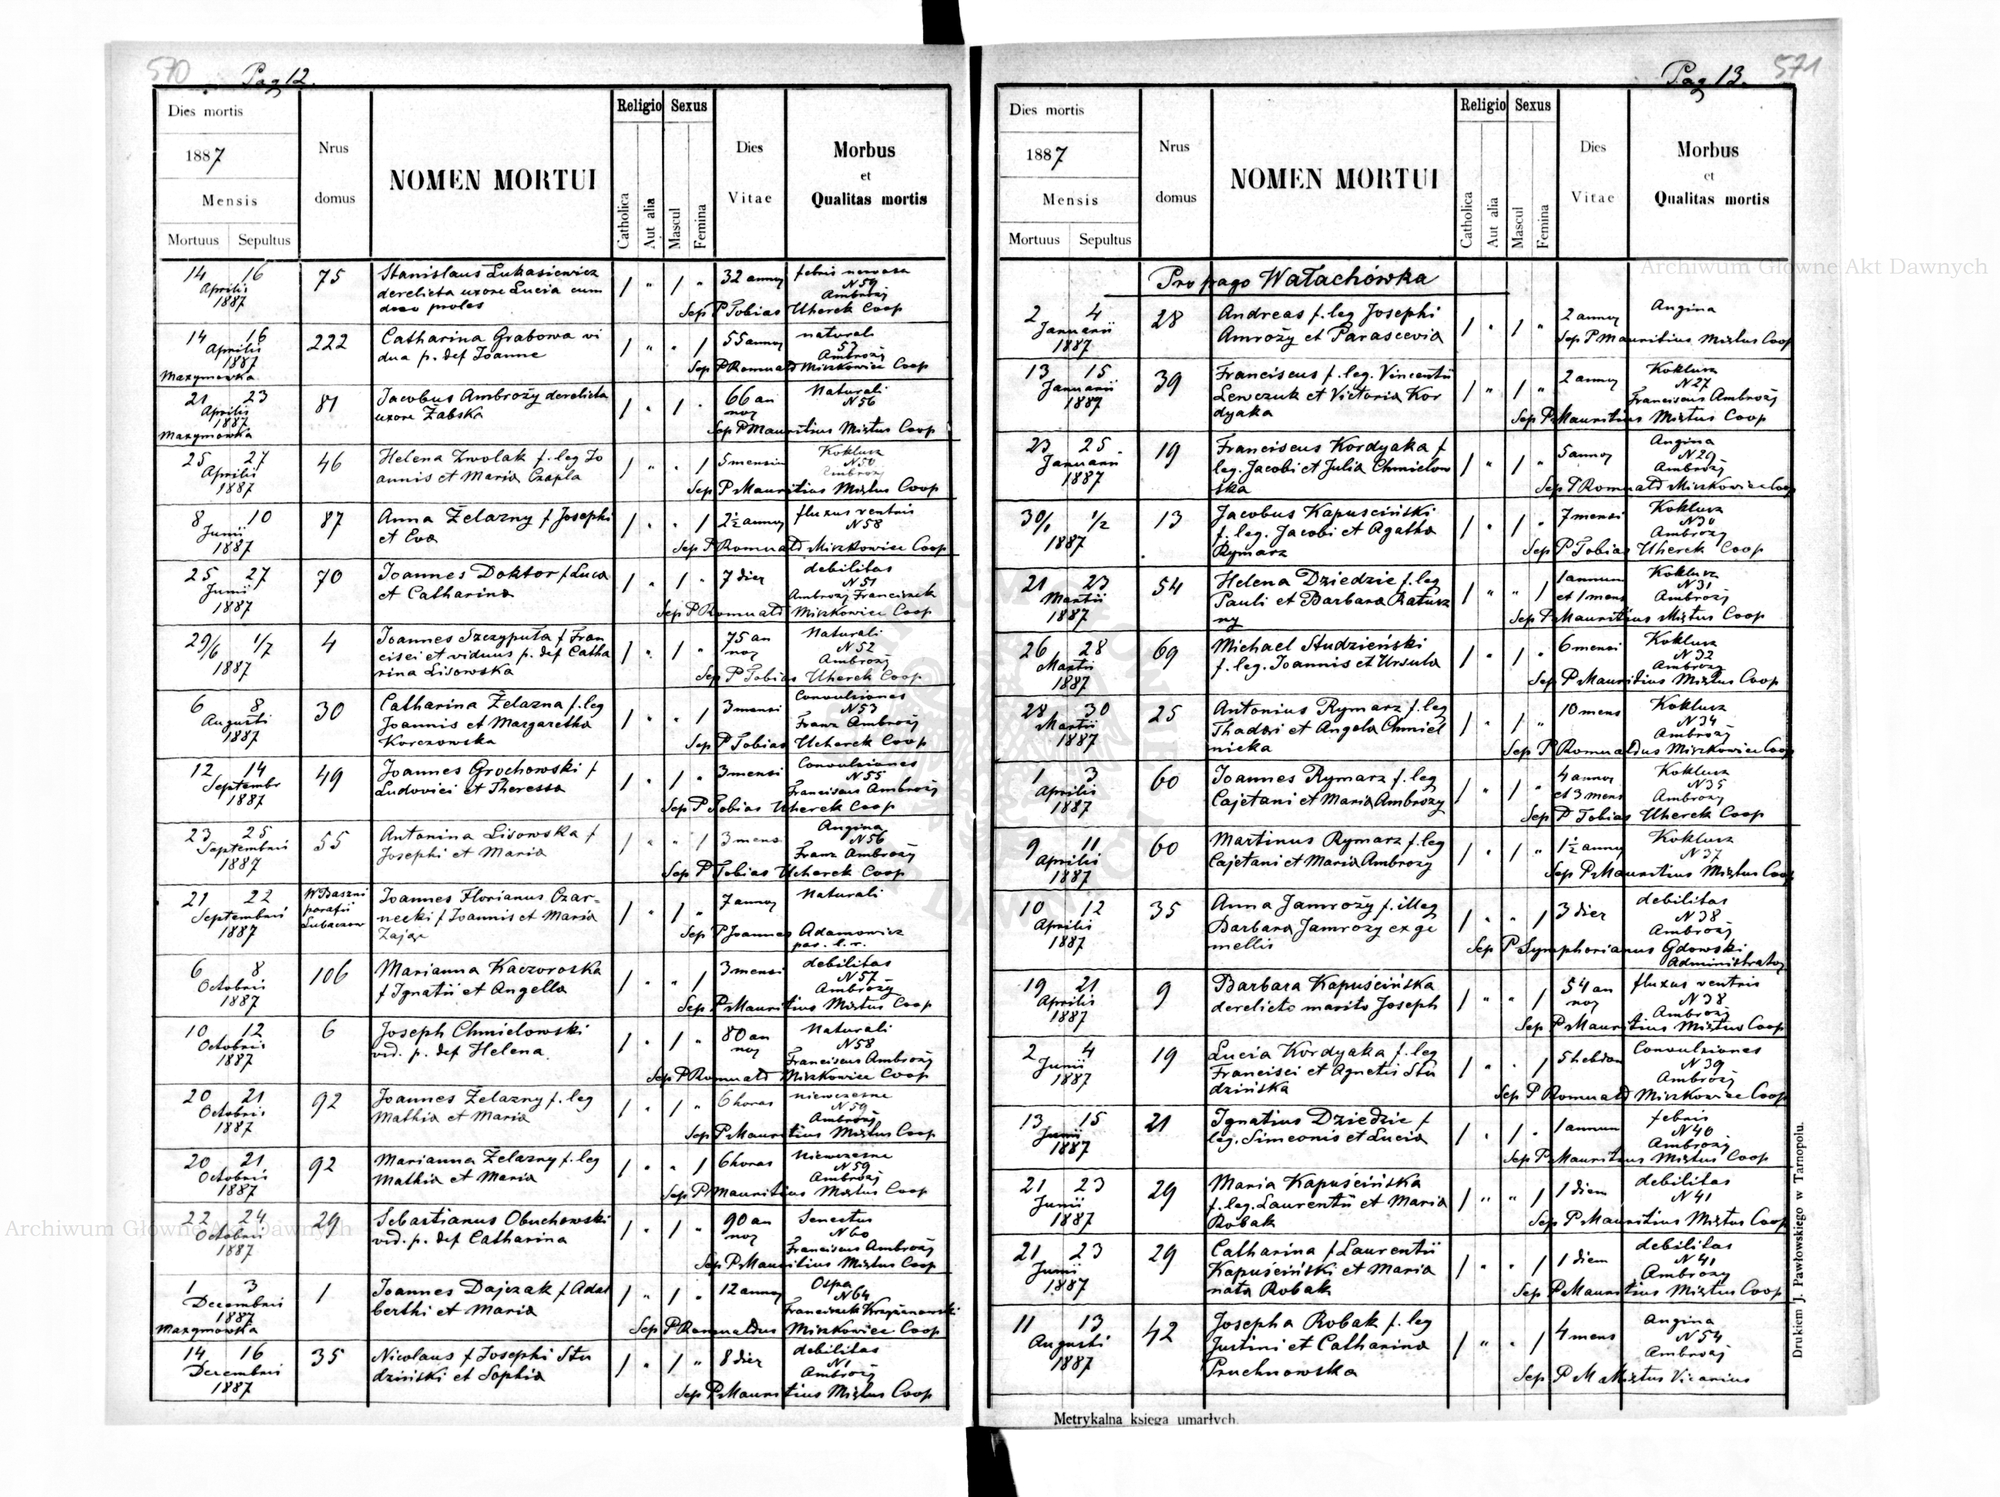 570
Pag 12.
Dies mortis
1887
Mensis
Mortuus Sepultus
Nrus domus
NOMEN MORTUI
Religio
Catholica
Aut alia
Sexus
Mascul
Femina
Dies Vitae
Morbus
et
Qualitas mortis
14 16
Aprilis
1887
75
Stanislaus Łukasiewicz
derelicta uxore Lucia cum
duo proles
32 annoz
febris nervosa
N 59
Ambroży
Sep P Tobias Uherek Coop
14 16
Aprilis
1887
Mazymowka
222
Catharina Grabowa vi
dua p. def Joanne
55 annoz
naturali
57
Ambroży
Sep P Romuald Mirzkowicz Coop
21 23
Aprilis
1887
Mazymowka
81
Jacobus Ambroży derelicta
uxore Żabska
66 an
noz
Naturali
N 56
Sep P Mauritius Mixtus Coop
25 27
Aprilis
1887
46
Helena Zwolak f. leg Jo
annis et Maria Czapla
5 mensiu
Koklusz
N 50
Ambroży
Sep P Mauritius Mixtus Coop
8 10
Junii
1887
87
Anna Żelazny f Josephi
et Eva
2½ annoy
fluxus ventris
N 58
Sep P Romuald Mirzkowicz Coop
25 27
Junii
1887
70
Joannes Doktor f Luca
et Catharina
7 dier
debilitas
N 51
Ambroży Franciszek
Sep P Romuald Mirzkowicz Coop
29/6 1/7
1887
4
Joannes Szczyputa f Fran
cisci et viduus p. def Catha
rina Lisowska
75 an
noz
Naturali
N 52
Ambroży
Sep P Tobias Uherek Coop
6 8
Augusti
1887
30
Catharina Żelazna f. leg
Joannis et Margaretha
Korczowska
3 mensi
Convulsiones
N 53
Franz Ambroży
Sep P Tobias Ucherek Coop
12 14
Septembr
1887
49
Joannes Grochowski f
Ludovici et Theressa
3 mensi
Convulsiones
N 55
Franciscus Ambroży
Sep P Tobias Uherek Coop
23 25
Septembris
1887
55
Antonina Lisowska f
Josephi et Maria
3 mens
Angina
N 56
Franz Ambroży
Sep P Tobias Ucherek Coop
21 22
Septembris
1887
W Baszni
parafii
Lubaczow
Joannes Florianus Czar-
necki f Joannis et Maria
Zając
7 annoy
Naturali
Sep P Joannes Adamowicz
par. l. r.
6 8
Octobris
1887
106
Marianna Kaczoroska
f Ignatii et Angella
3 mensi
debilitas
N 57
Ambroży
Sep P Mauritius Mixtus Coop
10 12
Octobris
1887
6
Joseph Chmielowski
vid. p. def Helena
80 an
noz
Naturali
N 58
Franciscus Ambroży
Sep P Romuald Mirzkowicz Coop
20 21
Octobris
1887
92
Joannes Żelazny f. leg
Mathia et Maria
6 horas
niewczesne
N 59
Ambroży
Sep P Mauritius Mixtus Coop
20 21
Octobris
1887
92
Marianna Żelazny f. leg
Mathia et Maria
6 horas
Niewczesne
N 59
Ambroży
Sep P Mauritius Mixtus Coop
22 24
Octobris
1887
29
Sebastianus Obuchowski
vid. p. def Catharina
90 an
noz
Senectus
N 60
Franciscus Ambroży
Sep P Mauritius Mixtus Coop
1 3
Decembris
1887
Mazymowka
1
Joannes Dajczak f Adal
berthi et Maria
12 annoy
Ospa
N 64
Franciszek Krzyżanowski
Sep P Romualdus Mirzkowicz Coop
14 16
Decembris
1887
35
Nicolaus f Josephi Stu
dziński et Sophia
8 dier
debilitas
N 1
Ambroży
Sep P Mauritius Mixtus Coop
571
Pag 13.
Dies mortis
1887
Mensis
Mortuus Sepultus
Nrus domus
NOMEN MORTUI
Religio
Catholica
Aut alia
Sexus
Mascul
Femina
Dies Vitae
Morbus
et
Qualitas mortis
Pro pago Wałachówka
2 4
Januarii
1887
28
Andreas f. leg Josephi
Amroży et Parascevia
2 annoy
Angina
Sep P Mauritius Mixtus Coop
13 15
Januarii
1887
39
Franciscus f. leg. Vincentii
Lewczuk et Victoria Kor
dyaka
2 annoy
Koklusz
N 27
Franciscus Ambroży
Sep P Mauritius Mixtus Coop
23 25
Januarii
1887
19
Franciscus Kordyaka f
leg. Jacobi et Julia Chmielow
ska
5 annoy
Angina
N 29
Ambroży
Sep P Romuald Mirzkowicz Coop
30/1 1/2
1887
13
Jacobus Kapuściński
f. leg. Jacobi et Agatha
Rymarz
7 mensi
Koklusz
N 30
Ambroży
Sep P Tobias Uherek Coop
21 23
Martii
1887
54
Helena Dziedzic f. leg
Pauli et Barbara Ratusz
ny
1 annum
et 1 mens
Koklusz
N 31
Ambroży
Sep P Mauritius Mixtus Coop
26 28
Martii
1887
69
Michael Studzieński
f. leg. Joannis et Ursula
6 mensi
Koklusz
N 32
Ambroży
Sep P Mauritius Mixtus Coop
28 30
Martii
1887
25
Antonius Rymarz f. leg
Thadei et Angela Chmiel
nicka
10 mens
Koklusz
N 34
Ambroży
Sep P Romualdus Mirzkowicz Coop
1 3
Aprilis
1887
60
Joannes Rymarz f. leg
Cajetani et Maria Ambroży
4 annoy
et 3 mens
Koklusz
N 35
Ambroży
Sep P Tobias Uherek Coop
9 11
Aprilis
1887
60
Martinus Rymarz f. leg
Cajetani et Maria Ambroży
1½ annoy
Koklusz
N 37
Sep P Mauritius Mixtus Coop
10 12
Aprilis
1887
35
Anna Jamroży f. illeg
Barbara Jamroży ex ge
mellis
3 dier
debilitas
N 38
Ambroży
Sep P Symphorianus Gdowski
Administrator
19 21
Aprilis
1887
9
Barbara Kapuścińska
derelicto marito Joseph
54 an
noz
fluxus ventris
N 38
Ambroży
Sep P Mauritius Mixtus Coop
2 4
Junii
1887
19
Lucia Kordyaka f. leg
Francisci et Agnetis Stu
dzińska
5 hebdom
Convulsiones
N 39
Ambroży
Sep P Romuald Mirzkowicz Coop
13 15
Junii
1887
21
Ignatius Dziedzic f
leg. Simeonis et Lucia
1 annum
febris
N 40
Ambroży
Sep P Mauritius Mixtus Coop
21 23
Junii
1887
29
Maria Kapuścińska
f. leg. Laurentii et Maria
Robak
1 diem
debilitas
N 41
Sep P Mauritius Mixtus Coop
21 23
Junii
1887
29
Catharina f Laurentii
Kapuściński et Maria
nata Robak
1 diem
debilitas
N 41
Ambroży
Sep P Mauritius Mixtus Coop
11 13
Augusti
1887
42
Josepha Robak f. leg
Justini et Catharina
Pruchnowska
4 mens
Angina
N 54
Ambroży
Sep P M Mixtus Vicarius
Metrykalna księga umarłych.
Drukiem J. Pawłowskiego w Tarnopolu.
Archiwum Główne Akt Dawnych
Archiwum Główne Akt Dawnych